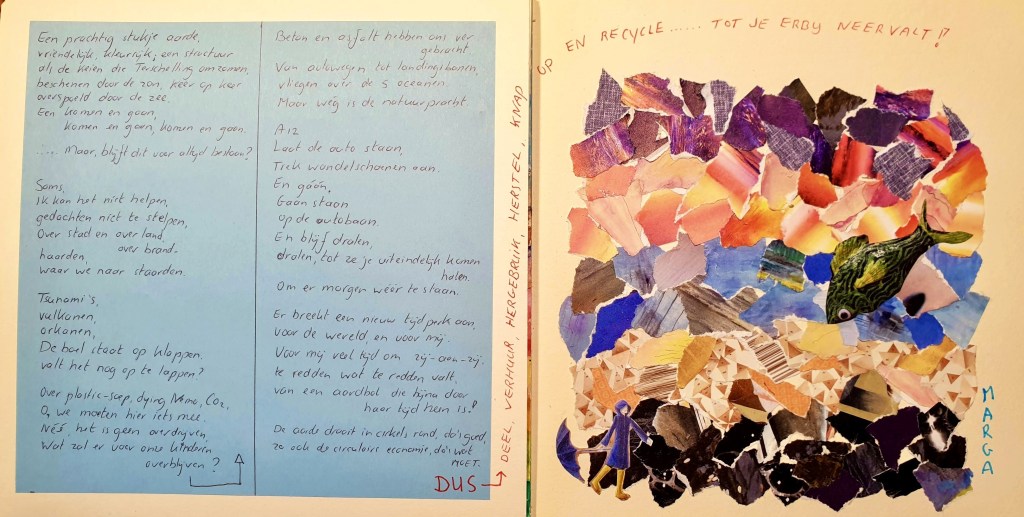 Een prachtig stukje aarde,
vriendelijk, kleurrijk; een structuur
als de keien die Terschelling omzomen,
beschenen door de zon, keer op keer
overspoeld door de zee.
Een komen en gaan,
komen en gaan, komen en gaan.
..... Maar, blijft dit voor altijd bestaan?
Soms,
ik kan het niet helpen,
gedachten niet te stelpen,
Over stad en over land,
over brand-
haarden,
waar we naar staarden.
Tsunami's,
vulkanen,
orkanen,
De boel staat op klappen.
valt het nog op te lappen?
Over plastic-soep, dying Nemo, CO2,
O, we moeten hier iets mee.
Néé, het is geen overdrijven,
Wat zal er voor onze kinderen
overblijven?
Beton en asfalt hebben ons ver
gebracht
Van autowegen tot landingsbanen,
vliegen over de 5 oceanen.
Maar wég is de natuurpracht
A12
Laat de auto staan,
Trek wandelschoenen aan.
En góón,
Gaan staan
op de autobaan.
En blijf dralen,
dralen, tot ze je uiteindelijk komen
halen.
Om er morgen wéér te staan.
Er breekt een nieuw tijdperk aan,
voor de wereld, en voor mij.
Voor mij veel tijd om zij-aan-zij.
te redden wat te redden valt.
van een aardbol die bijna door
haar tijd heen is!
De aarde draait in cirkels rond, da's goed,
zo ook de circulaire economie, da's wat
MOET.
DUS
DEEL, VERHUUR, HERGEBRUIK, HERSTEL, KNAP
OP
EN RECYCLE...... TOT JE ERBY NEERVALT!?
MARGA